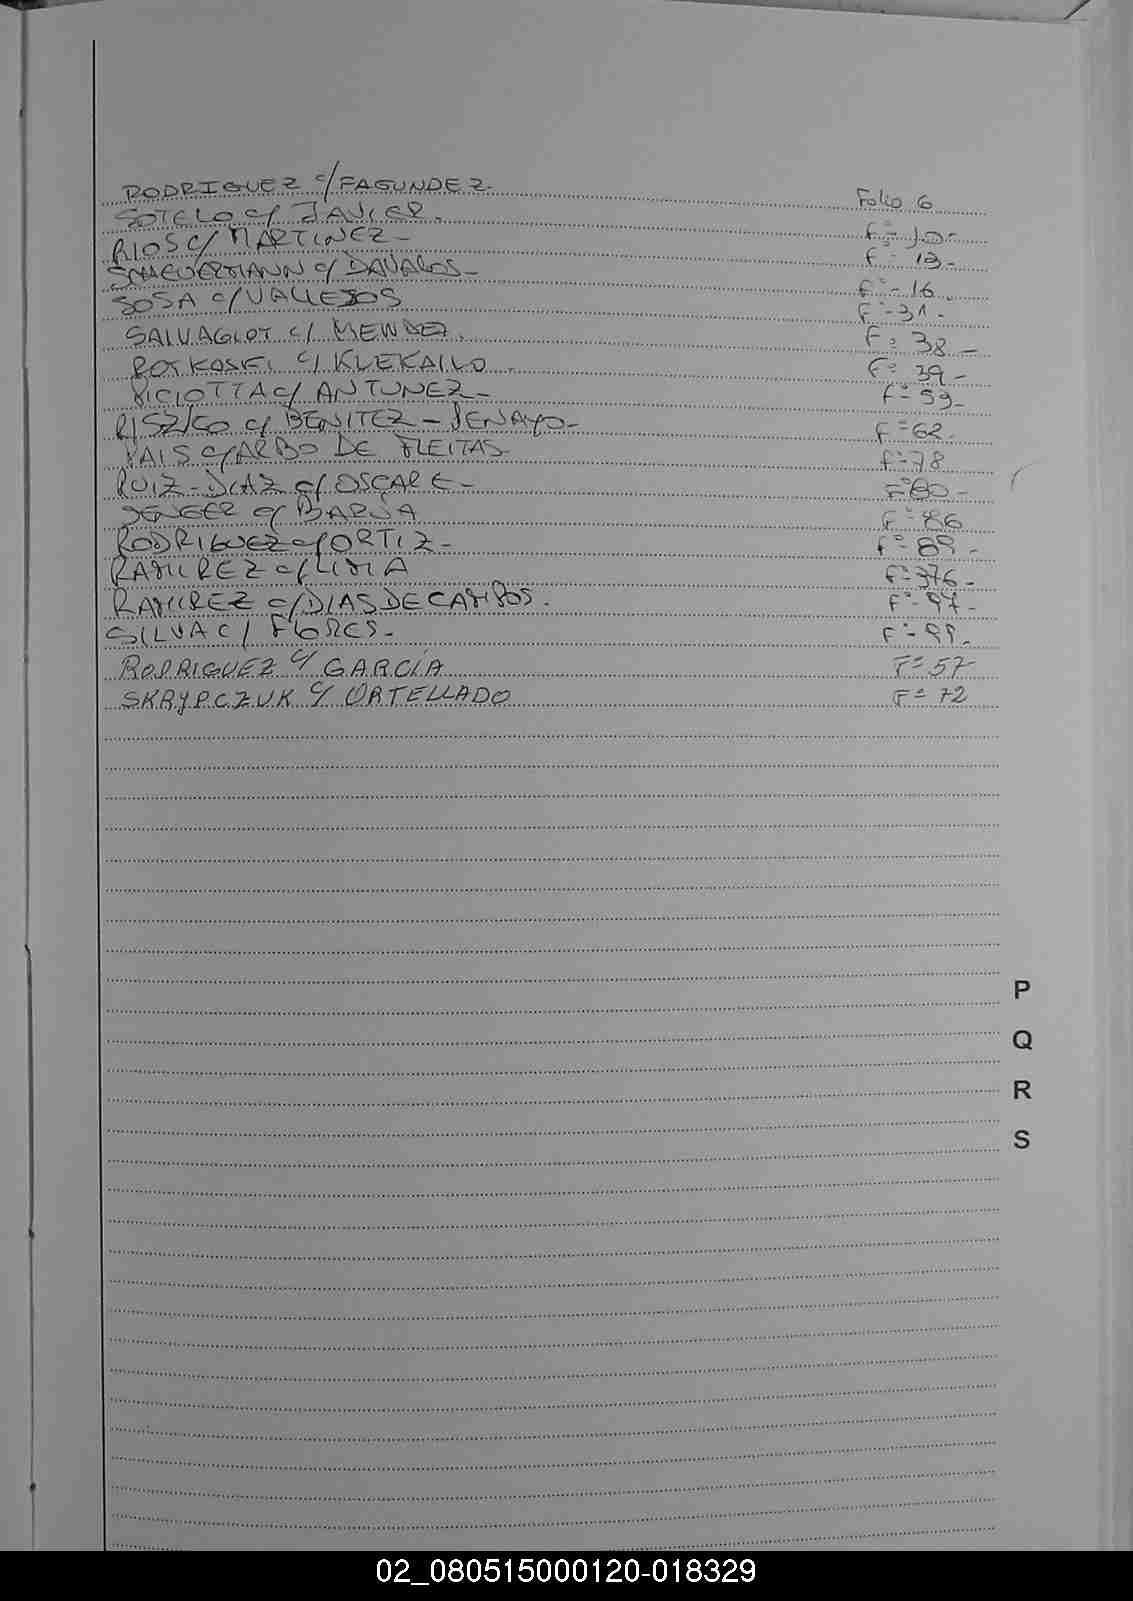 RODRIGUEZ c/ FAGUNDEZ. Folio 6
SOTELO c/ JAVIER. Fº- 10-
RIOS c/ MARTINEZ- Fº- 13-
SCHEUERMANN c/ DAVALOS- Fº- 16.
SOSA c/ VALLEJOS Fº- 31-
SALVAGIOT c/ MENDEZ. Fº 38-
c/ KLEKAILO Fº 39-
RICIOTTA c/ ANTUNEZ- Fº 59-
c/ BENITEZ - Fº 62.
PAIS c/ ARBO DE FLEITAS. Fº 78
RUIZ-DIAZ c/ OSCAR E- Fº 80-
SENGER c/ Fº 86
RODRIGUEZ c/ ORTIZ- Fº 89-
RAMIREZ c/ LIMA Fº 376-
RAMIREZ c/ DIAS DE CAMPOS. Fº- 97-
SILVA c/ FLORES- Fº- 99.
RODRIGUEZ c/ GARCÍA Fº 57
SKRYPCZUK c/ ORTELLADO Fº 72
P
Q
R
S
02_080515000120-018329